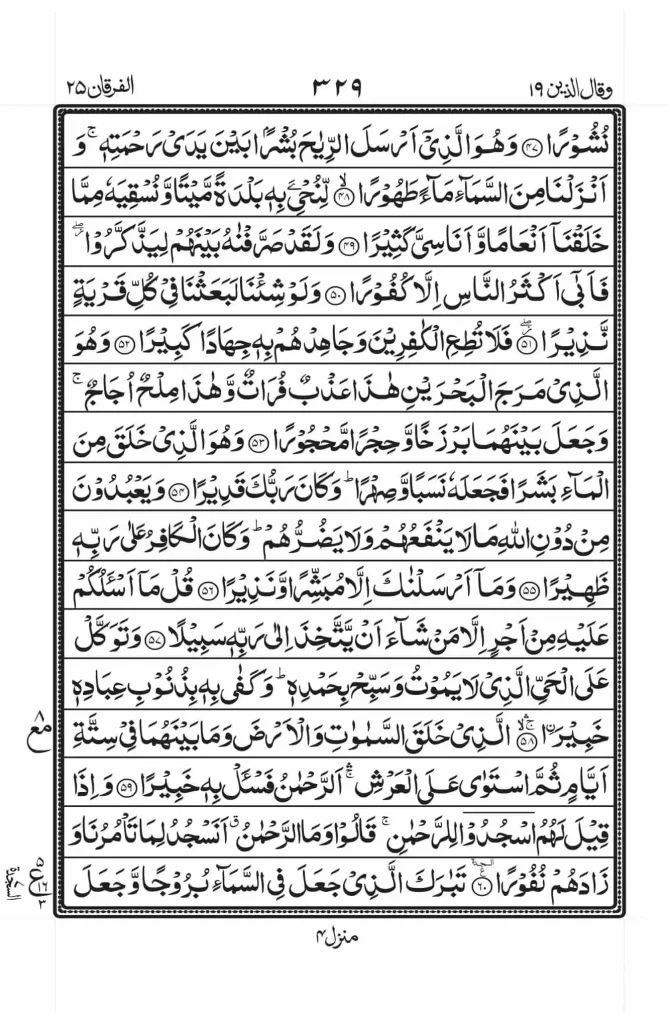 وقال الذین ۱۹ ۳۲۹ الفرقان ۲۵
نُشُوۡرًا ﴿۴۷﴾ وَهُوَ الَّذِىۡۤ اَرۡسَلَ الرِّيٰحَ بُشۡرًۢا بَيۡنَ يَدَىۡ رَحۡمَتِهٖ‌ۚ وَ
اَنۡزَلۡنَا مِنَ السَّمَآءِ مَآءً طَهُوۡرًا ۙ‏﴿۴۸﴾ لِّنُحۡیِۦَ بِهٖ بَلۡدَةً مَّيۡتًا وَّنُسۡقِيَهٗ مِمَّا
خَلَقۡنَاۤ اَنۡعَامًا وَّاَنَاسِىَّ كَثِيۡرًا ﴿۴۹﴾ وَلَـقَدۡ صَرَّفۡنٰهُ بَيۡنَهُمۡ لِيَذَّكَّرُوۡا ‌ۖ
فَاَبٰٓى اَكۡثَرُ النَّاسِ اِلَّا كُفُوۡرًا ﴿۵۰﴾ وَلَوۡ شِئۡنَا لَبَـعَثۡنَا فِىۡ كُلِّ قَرۡيَةٍ
نَّذِيۡرًا ‌ۖ ﴿۵۱﴾ فَلَا تُطِعِ الۡكٰفِرِيۡنَ وَ جَاهِدۡهُمۡ بِهٖ جِهَادًا كَبِيۡرًا ﴿۵۲﴾ وَهُوَ
الَّذِىۡ مَرَجَ الۡبَحۡرَيۡنِ هٰذَا عَذۡبٌ فُرَاتٌ وَّهٰذَا مِلۡحٌ اُجَاجٌ‌ ۚ
وَجَعَلَ بَيۡنَهُمَا بَرۡزَخًا وَّحِجۡرًا مَّحۡجُوۡرًا ﴿۵۳﴾ وَهُوَ الَّذِىۡ خَلَقَ مِنَ
الۡمَآءِ بَشَرًا فَجَعَلَهٗ نَسَبًا وَّ صِهۡرًا‌ ؕ وَكَانَ رَبُّكَ قَدِيۡرًا ﴿۵۴﴾ وَيَعۡبُدُوۡنَ
مِنۡ دُوۡنِ اللّٰهِ مَا لَا يَنۡفَعُهُمۡ وَلَا يَضُرُّهُمۡ‌ؕ وَكَانَ الۡـكَافِرُ عَلٰى رَبِّهٖ
ظَهِيۡرًا ﴿۵۵﴾ وَمَاۤ اَرۡسَلۡنٰكَ اِلَّا مُبَشِّرًا وَّنَذِيۡرًا ﴿۵۶﴾ قُلۡ مَاۤ اَسۡئَـلُكُمۡ
عَلَيۡهِ مِنۡ اَجۡرٍ اِلَّا مَنۡ شَآءَ اَنۡ يَّتَّخِذَ اِلٰى رَبِّهٖ سَبِيۡلًا ﴿۵۷﴾ وَتَوَكَّلۡ
عَلَى الۡحَـىِّ الَّذِىۡ لَا يَمُوۡتُ وَسَبِّحۡ بِحَمۡدِهٖ‌ ؕ وَكَفٰى بِهٖ بِذُنُوۡبِ عِبَادِهٖ
خَبِيۡرَا ۛۚ ۙ‏﴿۵۸﴾ اۨلَّذِىۡ خَلَقَ السَّمٰوٰتِ وَالۡاَرۡضَ وَمَا بَيۡنَهُمَا فِىۡ سِتَّةِ
اَيَّامٍ ثُمَّ اسۡتَوٰى عَلَى الۡعَرۡشِ ۛۚ اَلرَّحۡمٰنُ فَسۡئَـلۡ بِهٖ خَبِيۡرًا ﴿۵۹﴾ وَاِذَا
قِيۡلَ لَهُمُ اسۡجُدُوۡا لِلرَّحۡمٰنِ‌ ۚ قَالُوۡا وَمَا الرَّحۡمٰنُ ۗ اَنَسۡجُدُ لِمَا تَاۡمُرُنَا وَ
زَادَهُمۡ نُفُوۡرًا ﴿۶۰﴾ تَبٰـرَكَ الَّذِىۡ جَعَلَ فِى السَّمَآءِ بُرُوۡجًا وَّجَعَلَ
۸
مع
۵
ع
۱۶
۳
السجدة
منزل ۴